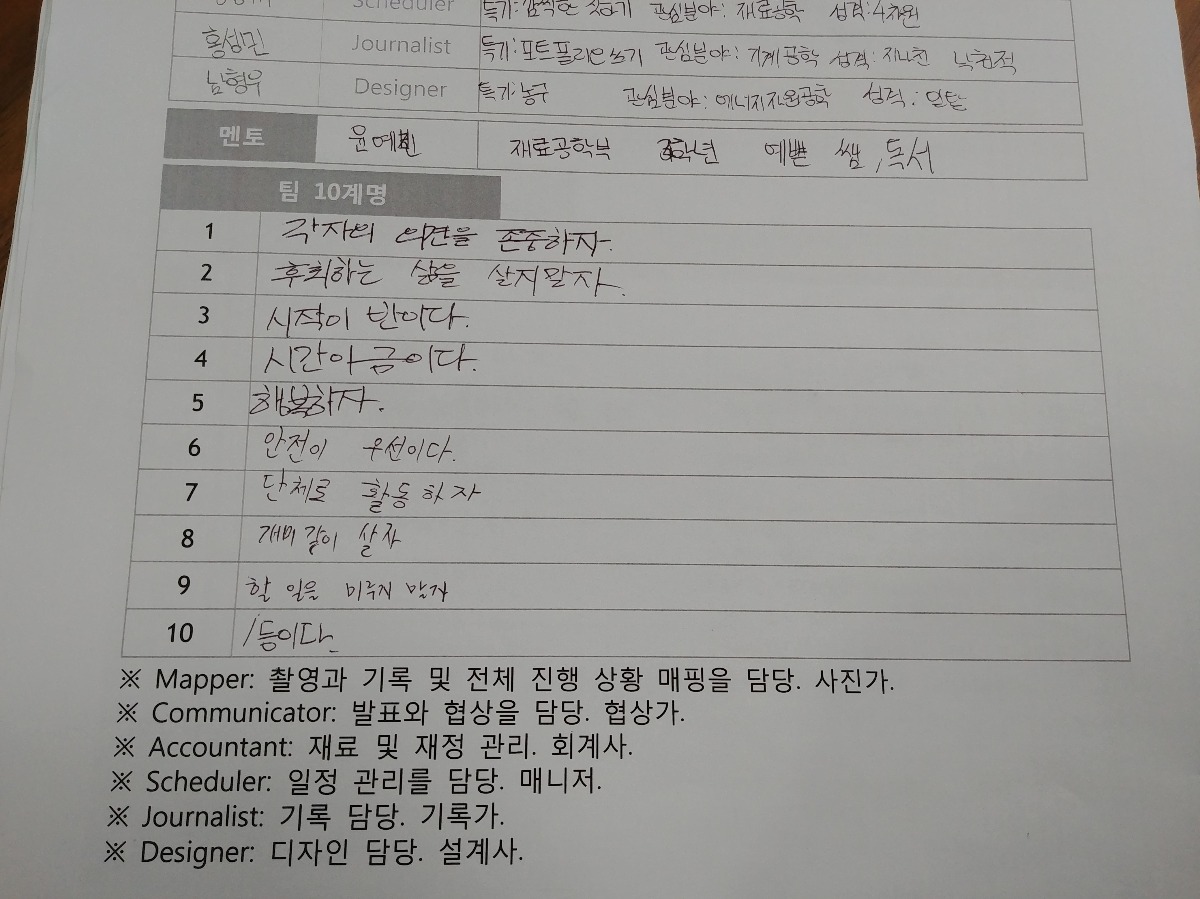 Scheduler 특기: 깜찍한 짓하기 관심분야: 재료공학 성격: 4차원
홍성민 Journalist 특기: 포트폴리오쓰기 관심분야: 기계공학 성격: 지나친 낙천적
남형우 Designer 특기: 농구 관심분야: 에너지자원공학 성격:
멘토 윤예린 재료공학부 3학년 예쁜 쌤, 독서
팀 10계명
1 각자의 의견을 존중하자.
2 후회하는 삶을 살지말자.
3 시작이 반이다.
4 시간아 금이다.
5 행복하자.
6 안전이 우선이다.
7 단체로 활동하자
8 개미같이 살자
9 할 일을 미루지 말자
10 1등이다
※ Mapper: 촬영과 기록 및 전체 진행 상황 매핑을 담당. 사진가.
※ Communicator: 발표와 협상을 담당. 협상가.
※ Accountant: 재료 및 재정 관리. 회계사.
※ Scheduler: 일정 관리를 담당. 매니저.
※ Journalist: 기록 담당. 기록가.
※ Designer: 디자인 담당. 설계사.